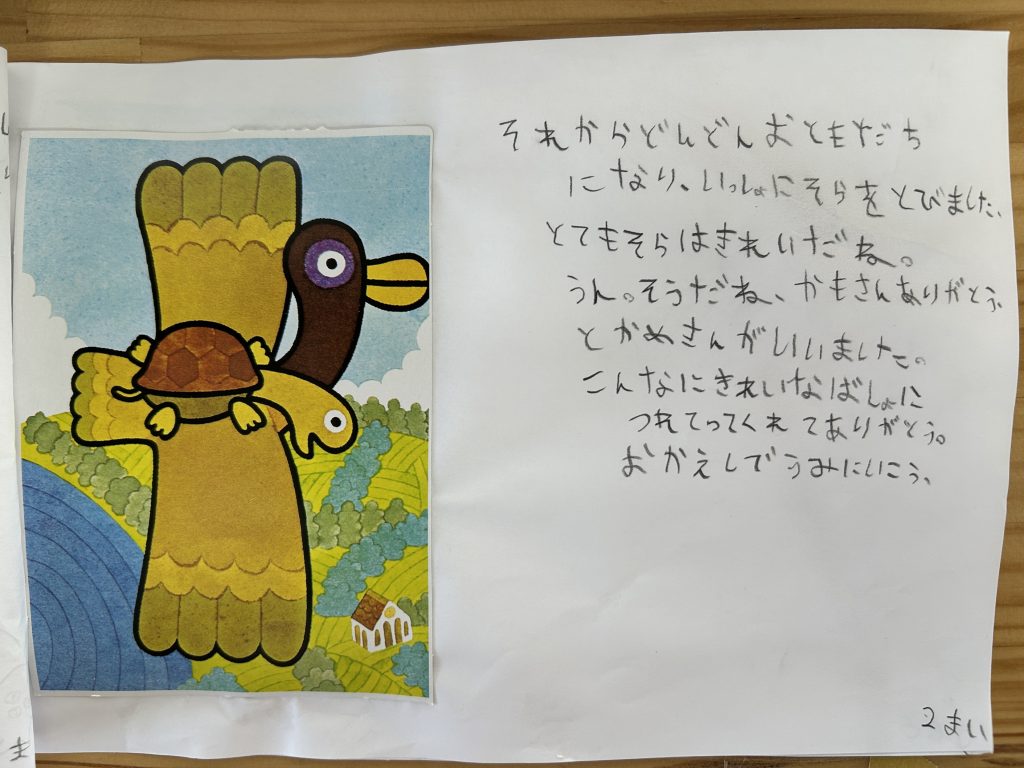 それからどんどんおともだち
になり、いっしょにそらをとびました、
とてもそらはきれいだね。
うん。そうだね、かもさんありがとう、
とかめさんがいいました。
こんなにきれいなばしょに
つれてってくれてありがとう。
おかえしでうみにいこう、
2まい